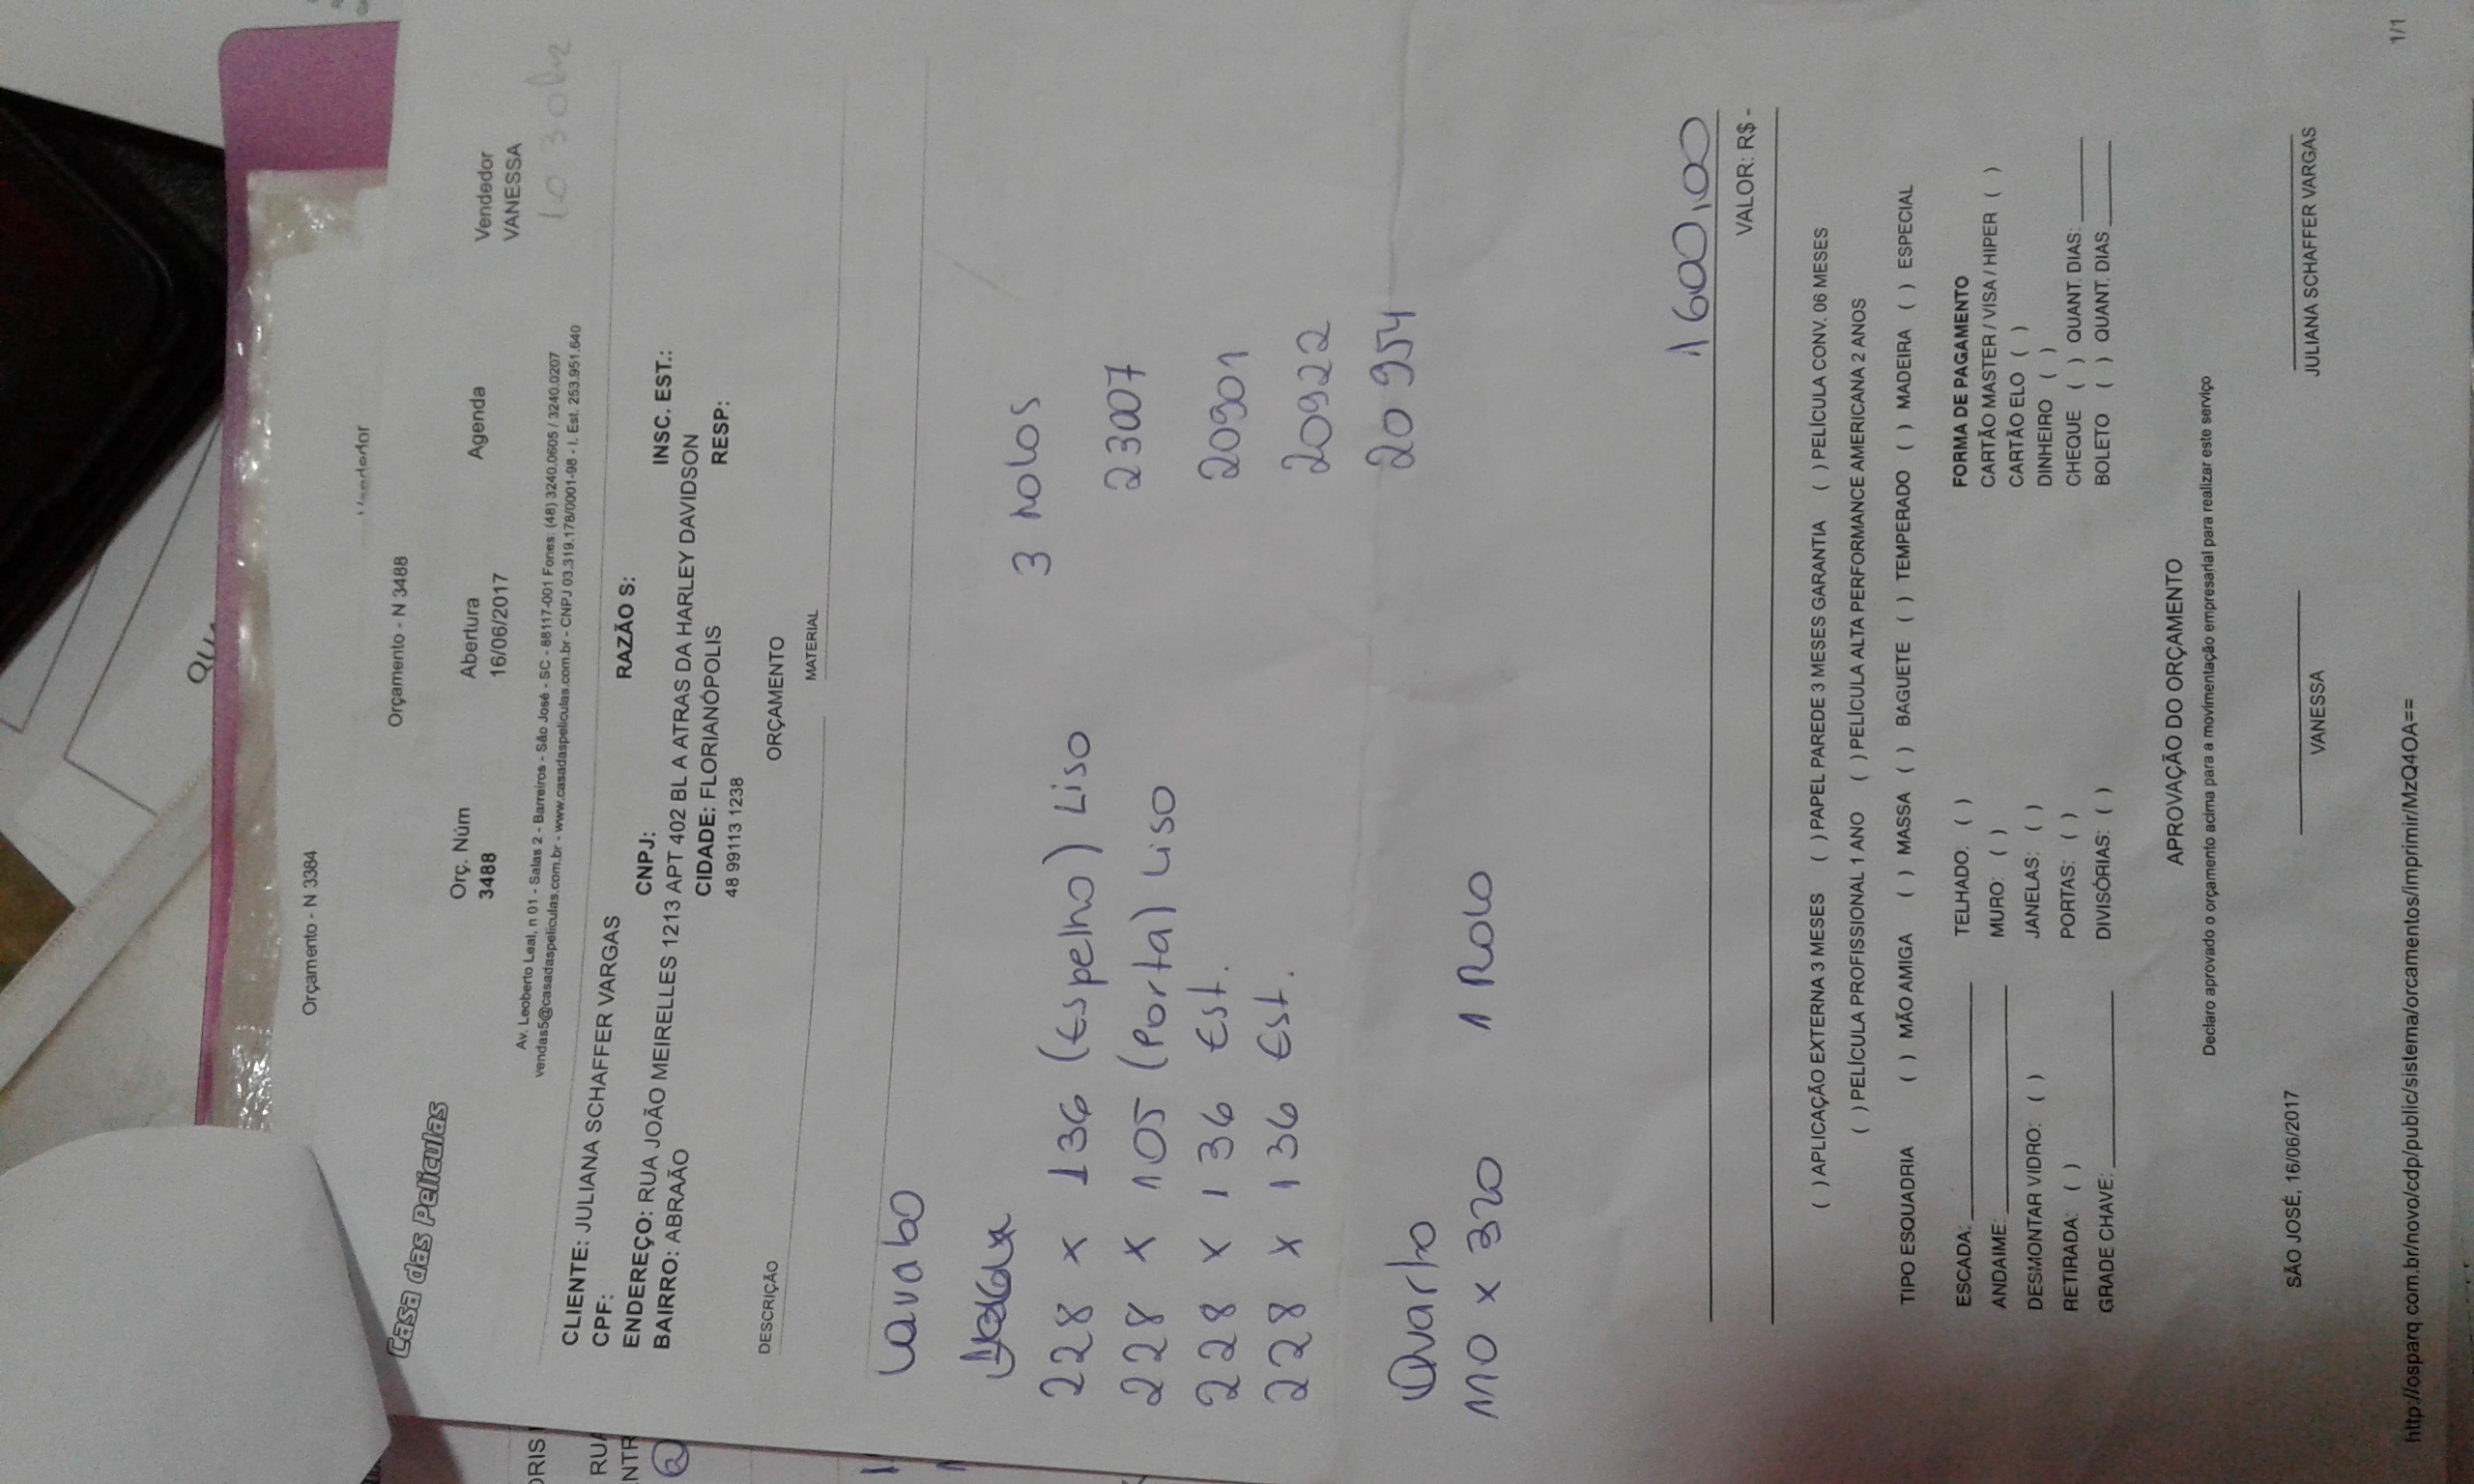 QU
Orçamento - N 3384
Vendedor
Orçamento - N 3488
Casa das Películas
Orç. Núm Abertura Agenda Vendedor
3488 16/06/2017 VANESSA
Av. Leoberto Leal, n 01 - Salas 2 - Barreiros - São José - SC - 88117-001 Fones: (48) 3240.0605 / 3240.0207
vendas5@casadaspeliculas.com.br - www.casadaspeliculas.com.br - CNPJ 03.319.178/0001-98 - I. Est. 253.951.640
CLIENTE: JULIANA SCHAFFER VARGAS RAZÃO S:
CPF: CNPJ: INSC. EST.:
ENDEREÇO: RUA JOÃO MEIRELLES 1213 APT 402 BL A ATRAS DA HARLEY DAVIDSON
BAIRRO: ABRAÃO CIDADE: FLORIANÓPOLIS RESP:
48 99113 1238
ORÇAMENTO
DESCRIÇÃO MATERIAL
Lavabo
3 rolos
228 x 136 (Espelho) Liso 23007
228 x 105 (Porta) Liso
228 x 136 Est. 20901
228 x 136 Est. 20922
20954
Quarto
110 x 320 1 Rolo
1600,00
VALOR: R$ -
( ) APLICAÇÃO EXTERNA 3 MESES ( ) PAPEL PAREDE 3 MESES GARANTIA ( ) PELÍCULA CONV. 06 MESES
( ) PELÍCULA PROFISSIONAL 1 ANO ( ) PELÍCULA ALTA PERFORMANCE AMERICANA 2 ANOS
TIPO ESQUADRIA ( ) MÃO AMIGA ( ) MASSA ( ) BAGUETE ( ) TEMPERADO ( ) MADEIRA ( ) ESPECIAL
ESCADA: TELHADO: ( ) FORMA DE PAGAMENTO
ANDAIME: MURO: ( ) CARTÃO MASTER / VISA / HIPER ( )
DESMONTAR VIDRO: ( ) JANELAS: ( ) CARTÃO ELO ( )
RETIRADA: ( ) PORTAS: ( ) DINHEIRO ( )
GRADE CHAVE: DIVISÓRIAS: ( ) CHEQUE ( ) QUANT. DIAS:
BOLETO ( ) QUANT. DIAS
APROVAÇÃO DO ORÇAMENTO
Declaro aprovado o orçamento acima para a movimentação empresarial para realizar este serviço
SÃO JOSÉ, 16/06/2017
VANESSA JULIANA SCHAFFER VARGAS
http://osparq.com.br/novo/cdp/public/sistema/orcamentos/imprimir/MzQ4OA== 1/1